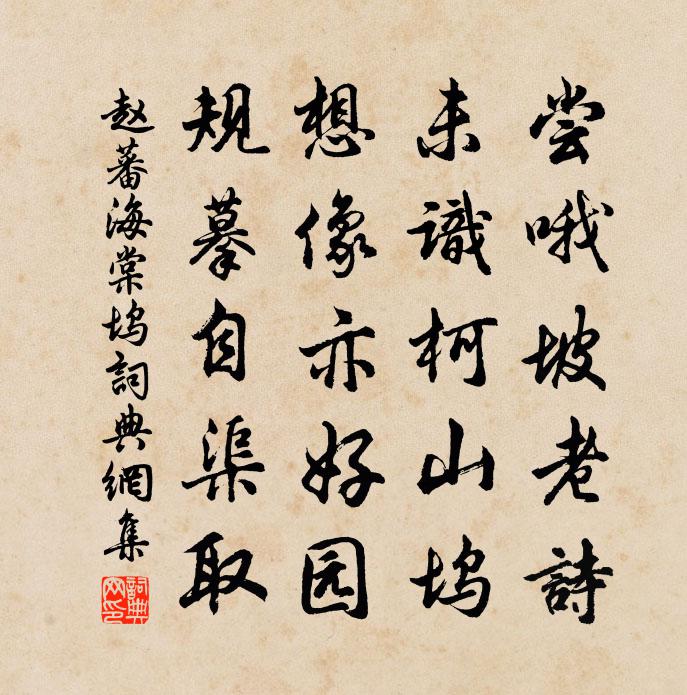 尝哦坡老詩
未識柯山坞
想像亦好园
规摹自渠取
赵蕃海棠坞詞典網集
詞典